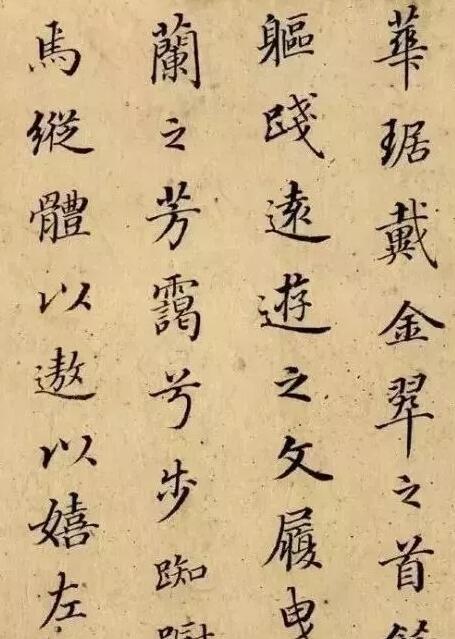 華琚戴金翠之首
軀踐遠遊之文履曳
蘭之芳靄兮步踟
焉縱體以遨以嬉左